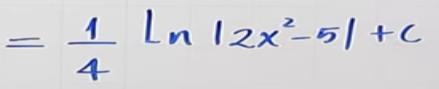 = 1/4 Ln |2x²-5| + C